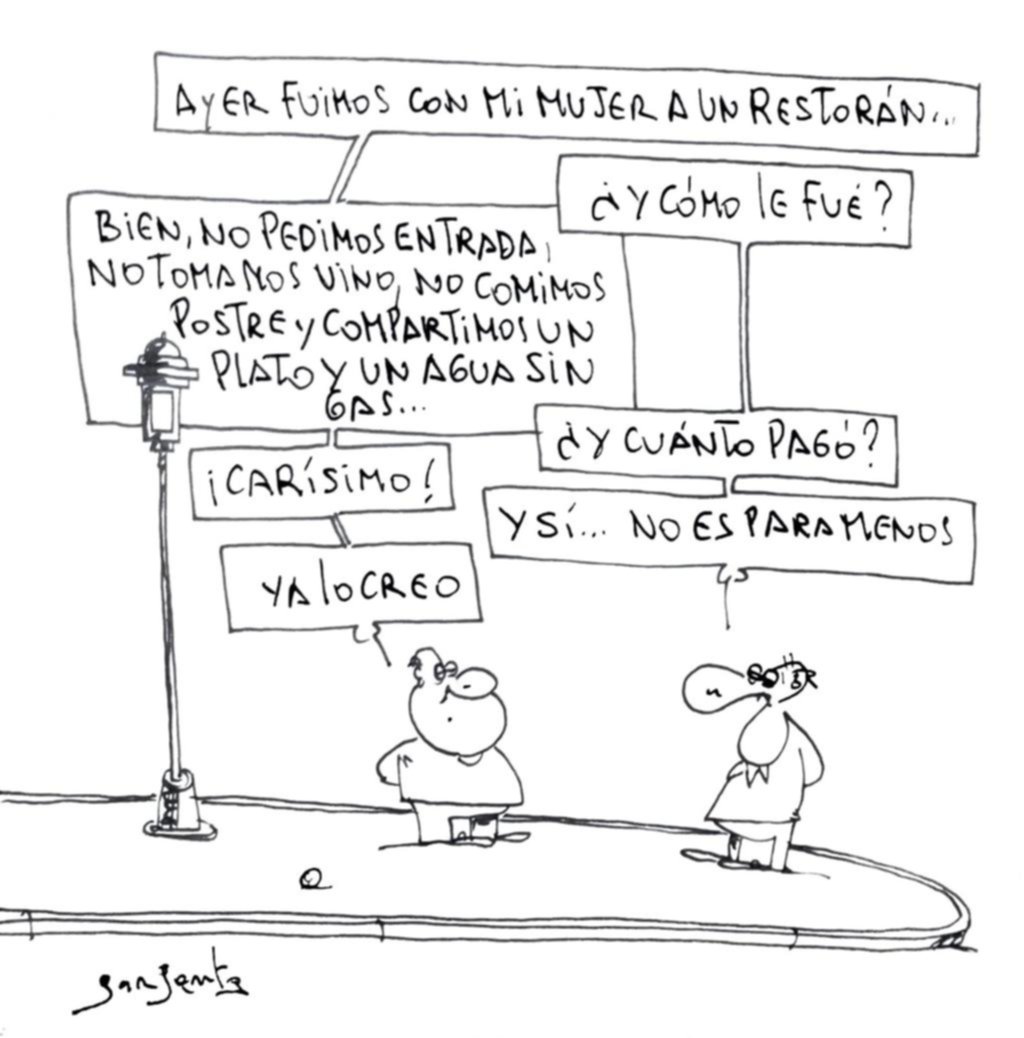 AYER FUIMOS CON MI MUJER A UN RESTORÁN...
¿Y CÓMO LE FUÉ?
BIEN, NO PEDIMOS ENTRADA,
NO TOMAMOS VINO, NO COMIMOS
POSTRE Y COMPARTIMOS UN
PLATO Y UN AGUA SIN
GAS...
¿Y CUÁNTO PAGÓ?
¡CARÍSIMO!
Y SÍ... NO ES PARA MENOS
YA LO CREO